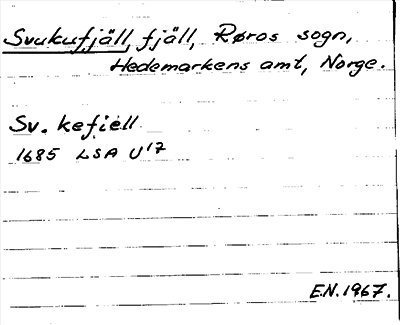 Svukufjäll, fjäll, Røros sogn,
Hedemarkens amt, Norge.
Sv. kefiell
1685 LSA U17
E.N. 1967.